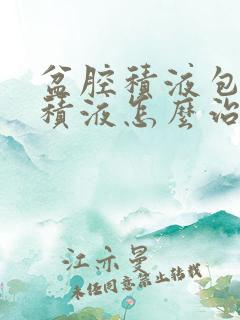 盆腔積液包
積液怎麼治
江亦曼
未经同意禁止转载